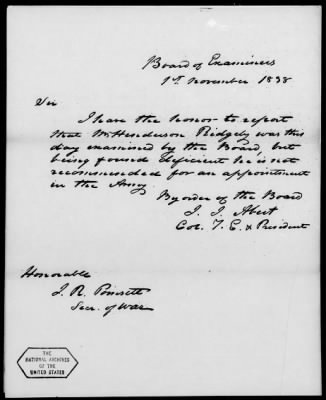 Board of Examiners
1st November 1838
Sir
I have the honor to report
that Mr Henderson Ridgely was this
day examined by the Board, but
being found deficient he is not
recommended for an appointment
in the Army.
By order of the Board
J. J. Abert
Col. T. E. & President
Honorable
J. R. Poinsett
Secr. of War
THE
NATIONAL ARCHIVES
OF THE
UNITED STATES